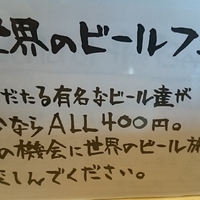 世界のビールフ
だたる有名なビール達が
なら ALL 400円。
の機会に世界のビール旅
楽しんでください。